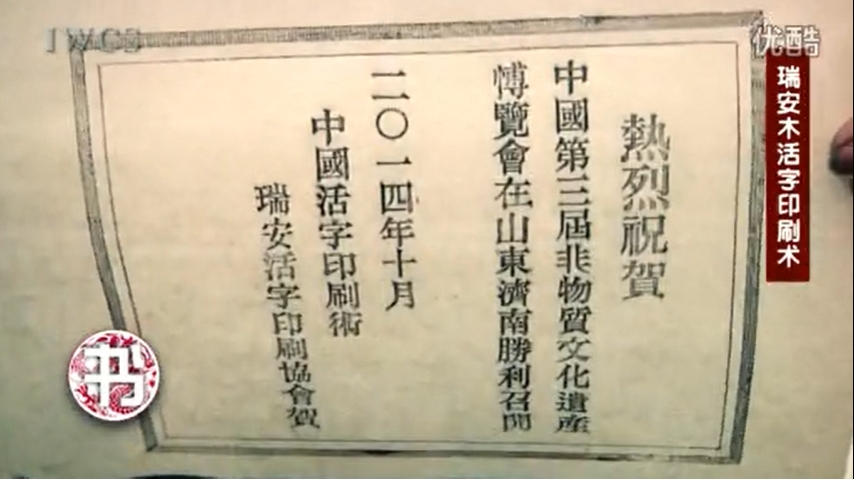 IWCS
优酷
瑞安木活字印刷术
熱烈祝賀
中國第三屆非物質文化遺產
愽覽會在山東濟南勝利召開
二〇一四年十月
中國活字印刷術
瑞安活字印刷協會賀
书